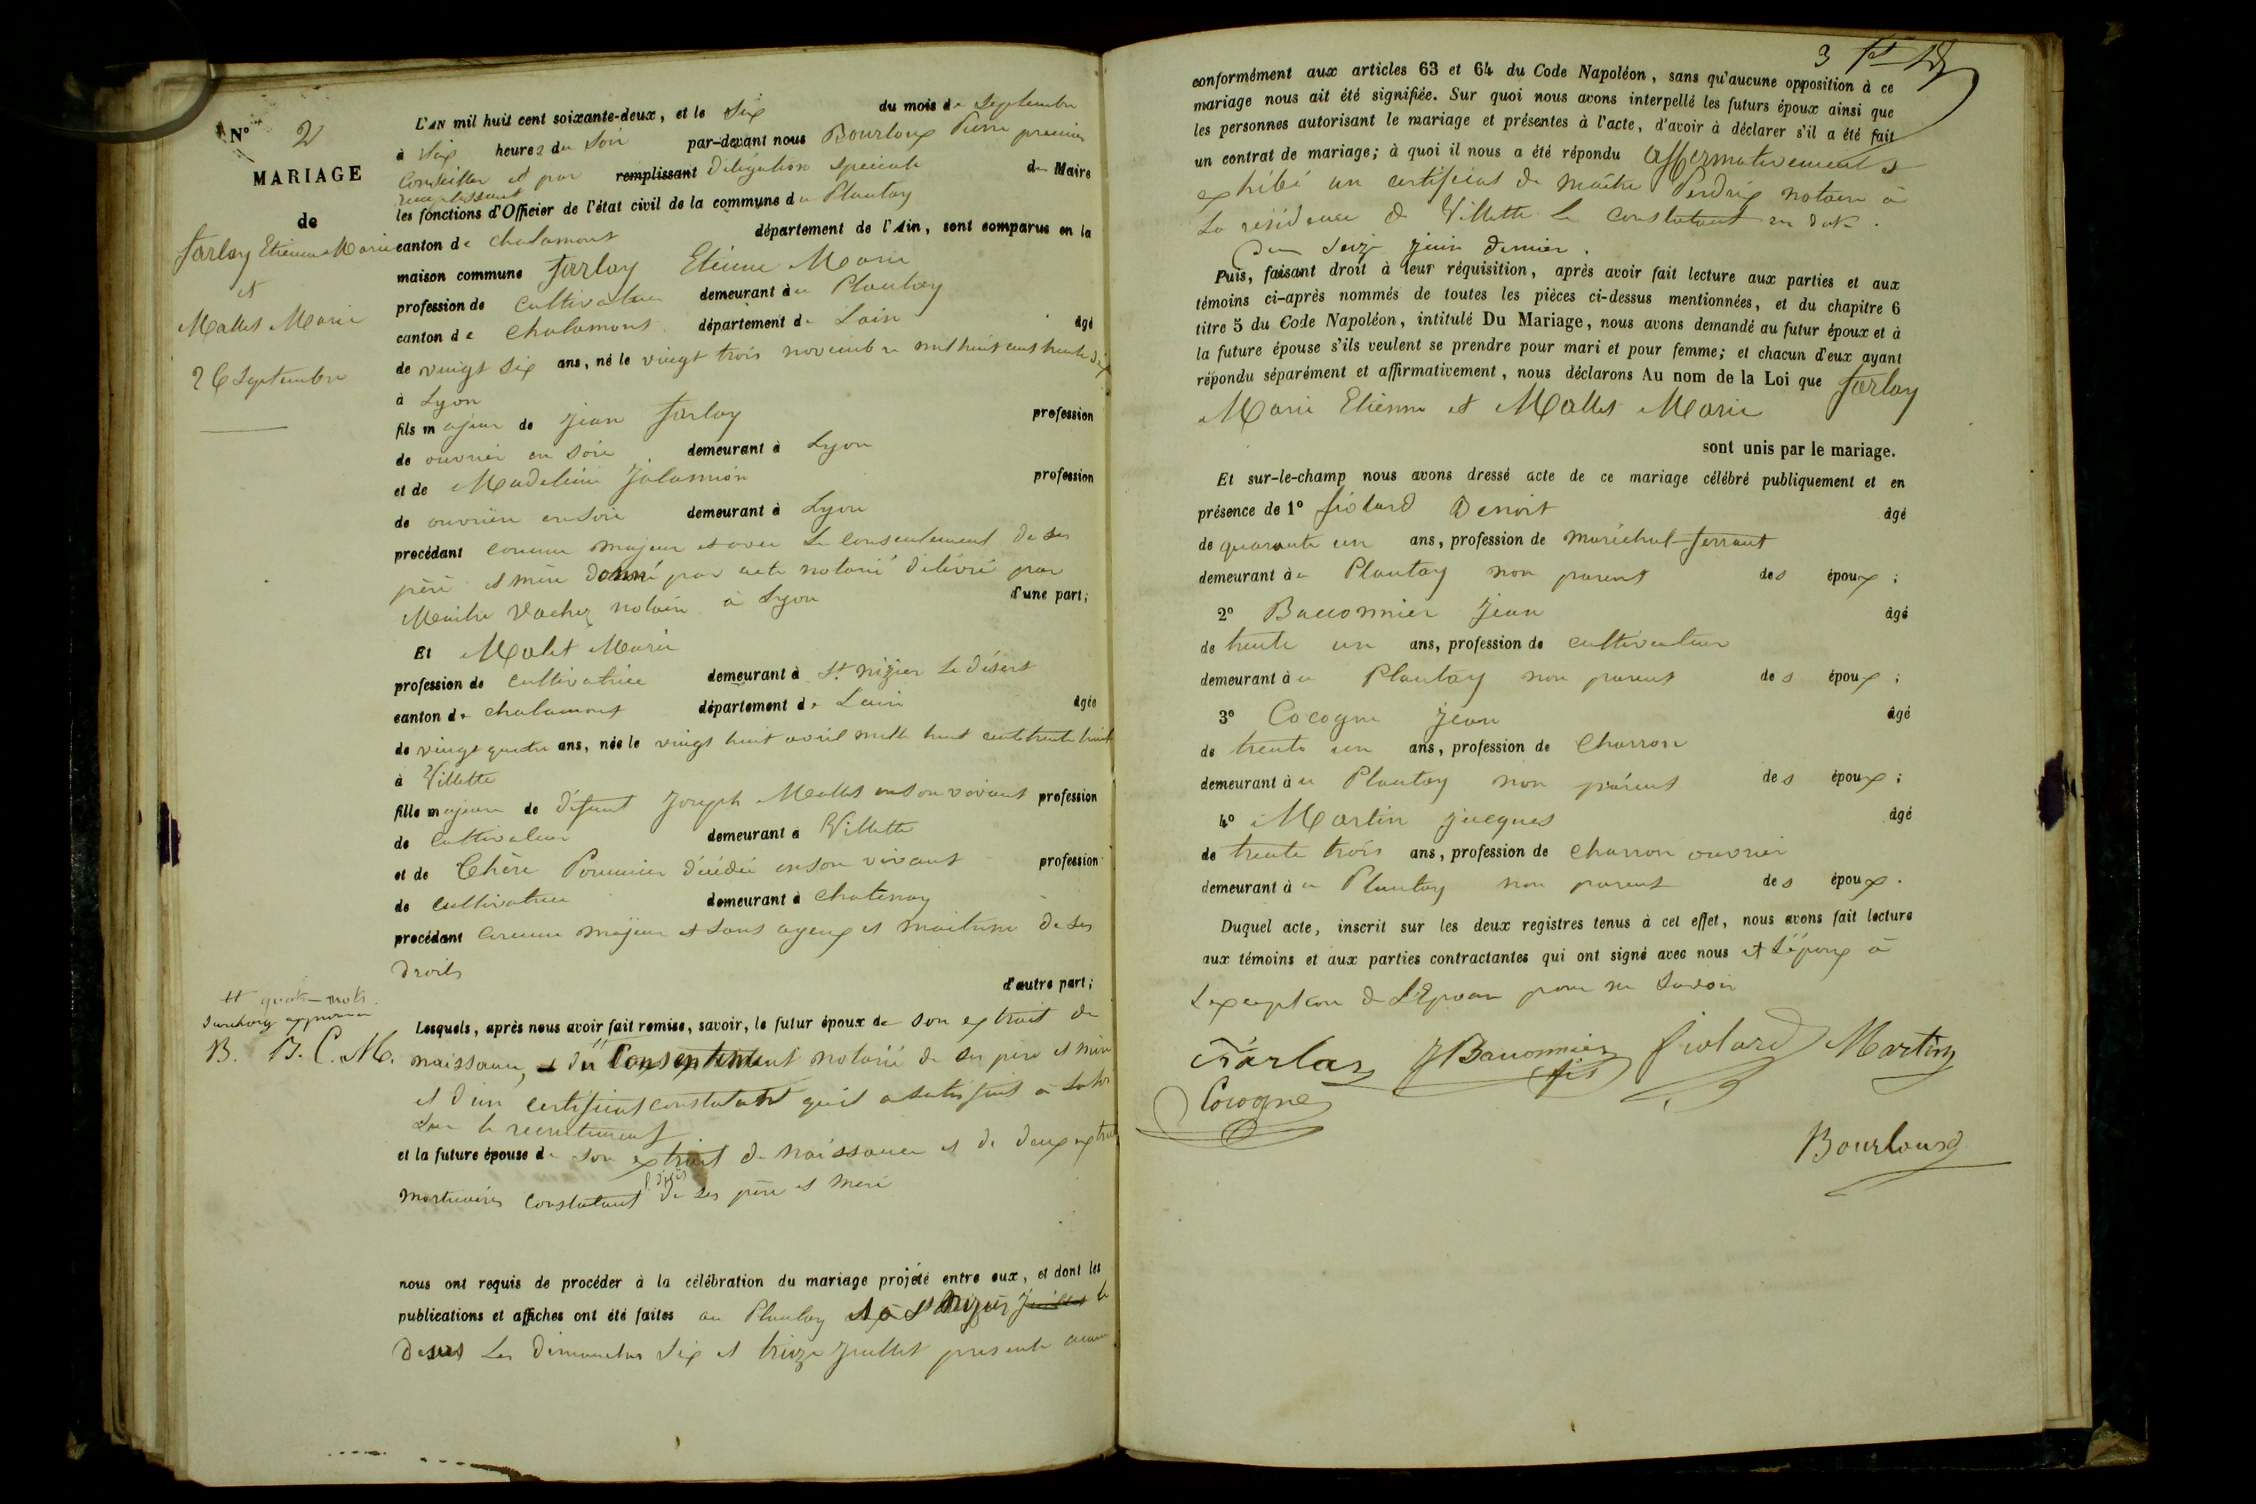 N° 2
MARIAGE
de
Farlay Etienne Marie
et
Mallet Marie
26 Septembre
L'AN mil huit cent soixante-deux, et le Six du mois de Septembre
à Six heures du Soir par-devant nous Bourloux Pierre premier
Conseiller et par remplissant Délégation Spéciale du Maire
remplissant
les fonctions d'Officier de l'état civil de la commune du Plantay
canton de chalamont département de l'Ain, sont comparus en la
maison commune Farlay Etienne Marie
profession de cultivateur demeurant au Plantay
canton de chalamont département de Lain âgé
de vingt Six ans, né le vingt trois novembre mil huit cent trente Six
à Lyon
fils majeur de Jean Farlay profession
de ouvrier en Soie demeurant à Lyon
et de Madeleine Jalamion profession
de ouvrière en Soie demeurant à Lyon
procédant comme majeur et avec Le consentement de Ses
père et mère donné par acte notarié délivré par
Maitre Vachez notaire à Lyon d'une part;
Et Malet Marie
profession de cultivatrice demeurant à St. nizier Le désert
canton de chalamont département de Lain âgée
de vingt quatre ans, née le vingt huit avril mille huit cent trente huit
à Villette
fille majeure de défunt Joseph Mallet en Son vivant profession
de cultivateur demeurant à Villette
et de Chère Pommier décédée en son vivant profession
de cultivatrice demeurant à chatenay
procédant comme majeure et Sans ayeux et maitresse de Ses
droits
d'autre part;
quatre mots
Surcharg approuvé
B. B. C. M.
Lesquels, après nous avoir fait remise, savoir, le futur époux de son extrait de
naissance, et du Consentement notarié de Ses père et mère
et d'un certificat constatant qu'il a satisfait à La loi
Sur le recrutement
et la future épouse de Son extrait de naissance et de deux extraits
mortuaires Constatant l. décès de Ses père et mère
nous ont requis de procéder à la célébration du mariage projeté entre eux, et dont les
publications et affiches ont été faites au Plantay et à St Nizier le
Désert Les dimanches Six et treize Juillet présente année
3
conformément aux articles 63 et 64 du Code Napoléon, sans qu'aucune opposition à ce
mariage nous ait été signifiée. Sur quoi nous avons interpellé les futurs époux ainsi que
les personnes autorisant le mariage et présentes à l'acte, d'avoir à déclarer s'il a été fait
un contrat de mariage; à quoi il nous a été répondu affermativement et
exhibé un certificat de maitre Perdrix notaire à
La résidence de Villette Le constatant en date
du Seize juin dernier.
Puis, faisant droit à leur réquisition, après avoir fait lecture aux parties et aux
témoins ci-après nommés de toutes les pièces ci-dessus mentionnées, et du chapitre 6
titre 5 du Code Napoléon, intitulé Du Mariage, nous avons demandé au futur époux et à
la future épouse s'ils veulent se prendre pour mari et pour femme; et chacun d'eux ayant
répondu séparément et affirmativement, nous déclarons Au nom de la Loi que Farlay
Marie Etienne et Mallet Marie
sont unis par le mariage.
Et sur-le-champ nous avons dressé acte de ce mariage célébré publiquement et en
présence de 1° fiolard Benoit âgé
de quarante un ans, profession de maréchal-ferrant
demeurant au Plantay non parent des époux;
2° Bauonnier Jean âgé
de trente un ans, profession de cultivateur
demeurant au Plantay non parent des époux;
3° Cocogne Jean âgé
de trente un ans, profession de Charron
demeurant au Plantay non parent des époux;
4° Martin jacques âgé
de trente trois ans, profession de charron ouvrier
demeurant au Plantay non parent des époux.
Duquel acte, inscrit sur les deux registres tenus à cet effet, nous avons fait lecture
aux témoins et aux parties contractantes qui ont signé avec nous et L'époux à
L'exception de L'Epouse pour ne Savoir
Farlay JBauonnier fils fiolard Martin
Cocogne
Bourloux